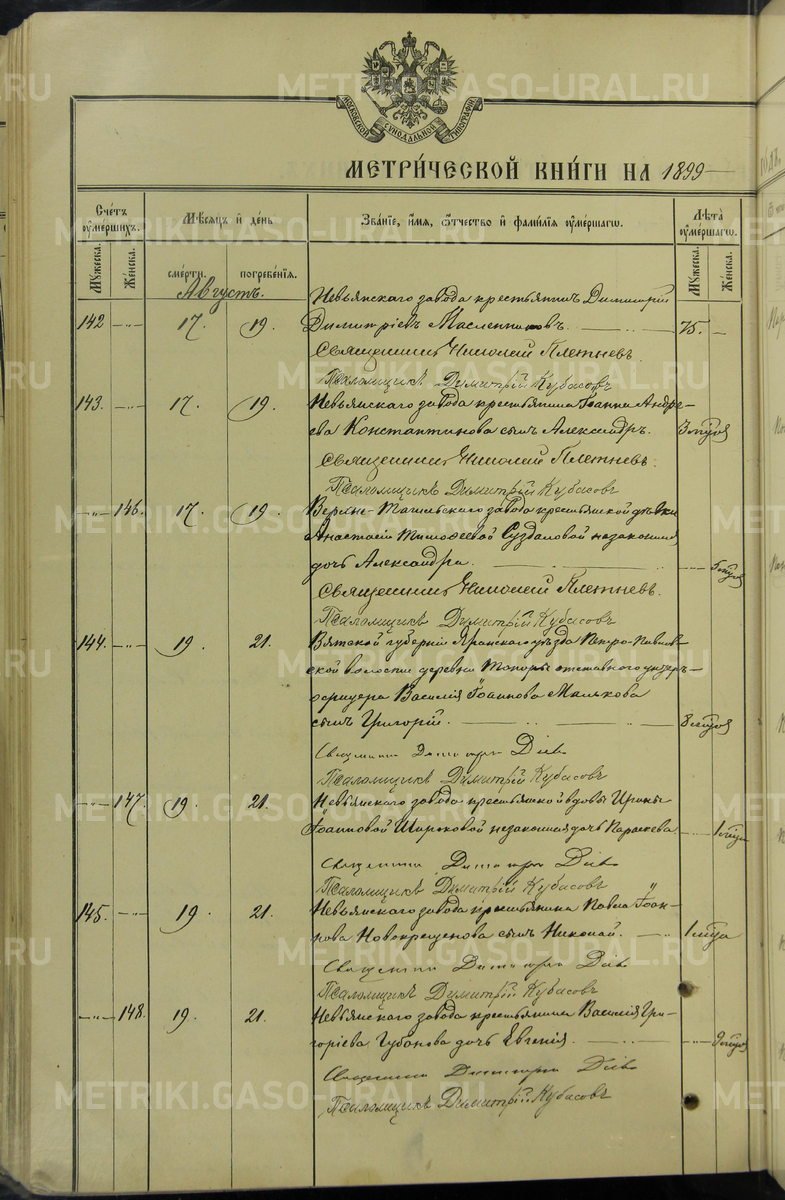 МОСКОВСКОЙ СУНОДАЛЬНОЙ ТИПОГРАФІИ
МЕТРИ́ЧЕСКОЙ КНИ́ГИ НА 1899
Сче́тъ оу҆ме́ршихъ.
Мѣ́сяцъ и҆ де́нь
Зва́нїе, и҆́мя, ѻ҆́тчество и҆ фами́лїя оу҆ме́ршагѡ.
Лѣ́та оу҆ме́ршагѡ.
Мꙋ́жеска.
Же́нска.
сме́рти.
погребе́нїя.
Мꙋ́жеска.
Же́нска.
Августъ.
Невьянскаго завода крестьянинъ Димитрій
142 —"— 17. 19. Димитріевъ Масленниковъ. 75. —
Священникъ Николай Плетневъ.
Псаломщикъ Димитрій Кубасовъ
143. —"— 17. 19. Невьянскаго завода крестьянина Іоанна Андре-
ева Константинова сынъ Александръ. 3 мѣсяц
Священникъ Николай Плетневъ.
Псаломщикъ Димитрій Кубасовъ
—"— 146. 17. 19. Верхне-Тагильскаго завода крестьянской дѣвки
Анастасіи Тимофеевой Суздаловой незаконная
дочь Александра.
Священникъ Николай Плетневъ.
Псаломщикъ Димитрій Кубасовъ
144. —"— 19. 21. Вятской губерніи Яранскаго уѣзда Петро-Павлов-
ской волости деревни отставного унтеръ-
офицера Василія Іоаннова Малькова
сынъ Григорій. 8 мѣсяц
Священникъ Димитрій
Псаломщикъ Димитрій Кубасовъ
—"— 147. 19. 21. Невьянскаго завода крестьянской вдовы Ирины
Іоанновой Широковой незаконная дочь Параскева
Священникъ Димитрій
Псаломщикъ Димитрій Кубасовъ
145. —"— 19. 21. Невьянскаго завода крестьянина Павла Іоан-
нова Новокрещенова сынъ Николай. 1 мѣсяца
Священникъ Димитрій
Псаломщикъ Димитрій Кубасовъ
—"— 148. 19. 21. Невьянскаго завода крестьянина Василія Гри-
горіева Губанова дочь Евгенія. 9 мѣсяц
Священникъ Димитрій
Псаломщикъ Димитрій Кубасовъ
METRIKI.GASO-URAL.RU